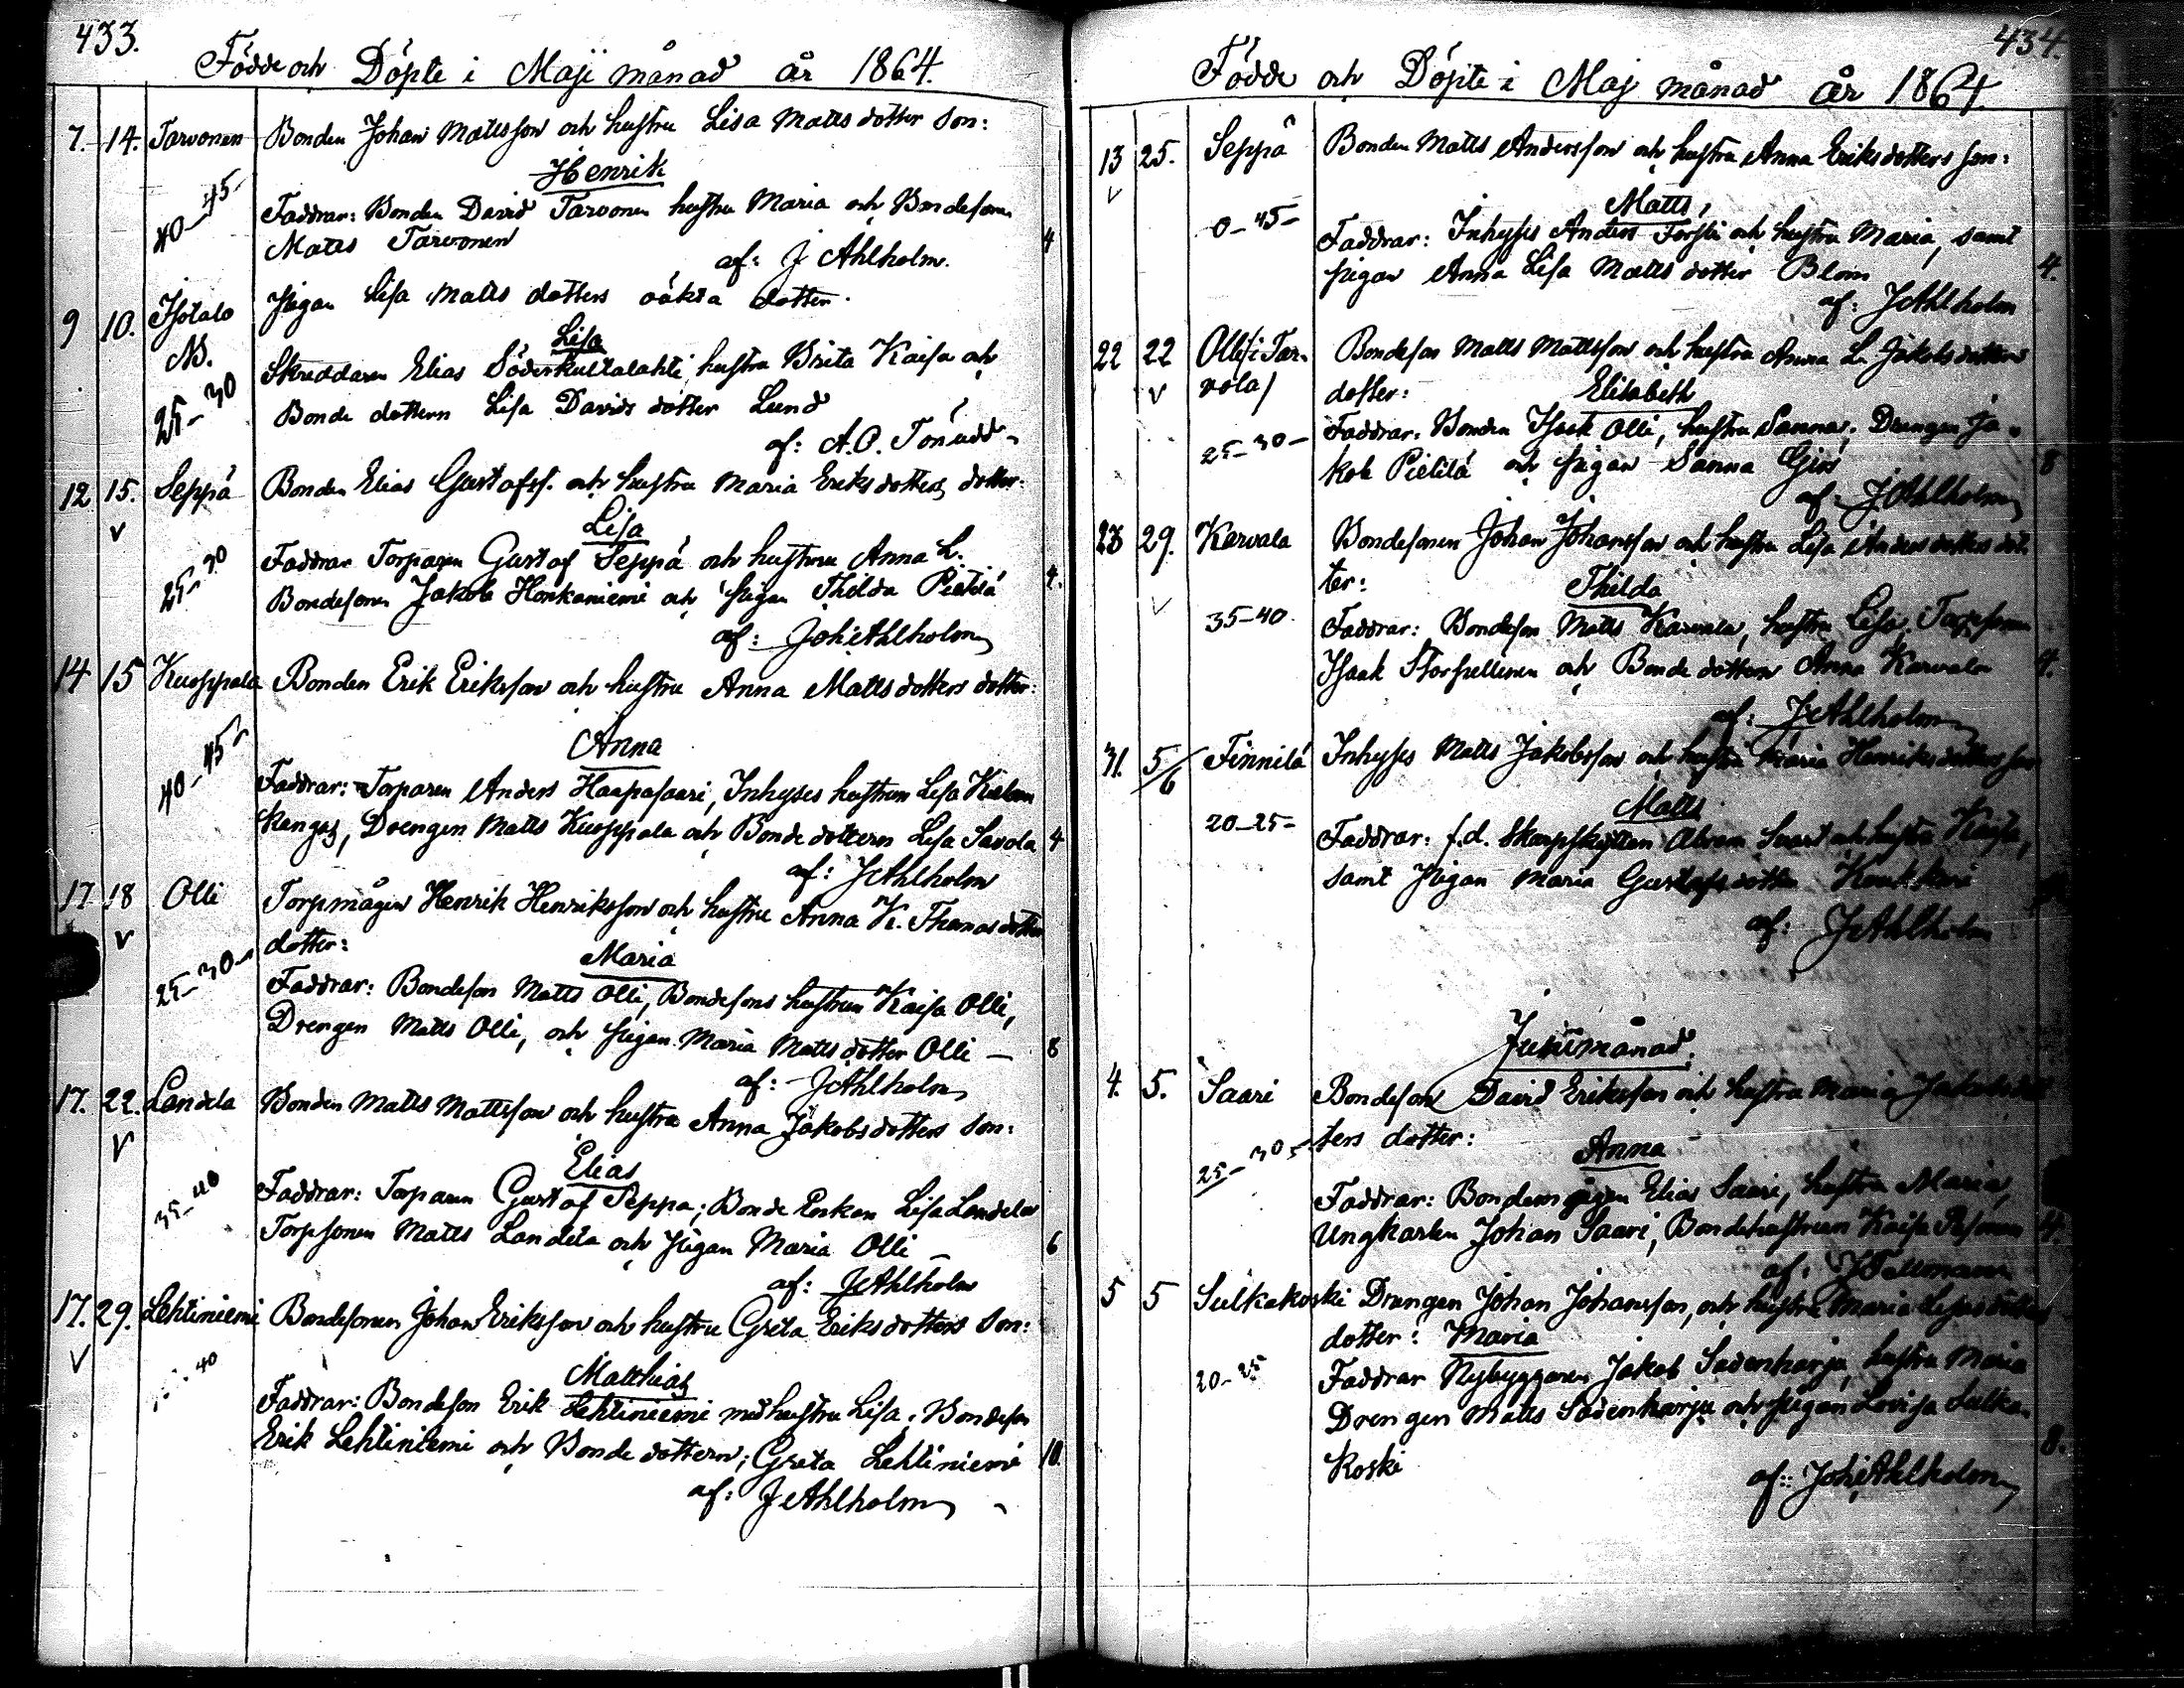 433.
Födde och Döpte i Maji månad år 1864.
7. 14. Tarvonen Bonden Johan Mattsson och hustru Lisa Matts dotter son:
Henrik
40-45- Faddrar: Bonden David Tarvonen hustru Maria och Bondesonen
Matts Tarvonen 4
af: J Ahlholm.
9 10. Isotalo Pigan Lisa Matts dotters oäkta dotter.
Lisa
N. Skreddaren Elias Söderkultalahti, hustru Brita Kaisa och
25-30 Bonde dottern Lisa Davids dotter Lund
af: A.O. Törnudd
12 15. Seppä Bonden Elias Gustafss. och hustru Maria Eriks dotters dotter:
v Lisa
25-30 Faddrar Torparen Gustaf Seppä och hustrun Anna L.
Bondesonen Jakob Honkaniemi och Pigan Thilda Pietilä 4.
af: Joh: Ahlholm
14 15 Kuoppala Bonden Erik Eriksson och hustru Anna Matts dotters dotter:
Anna
40-45- Faddrar: Torparen Anders Haapasaari, Inhyses hustrun Lisa
kangas, Drengen Matts Kuoppala och Bonde dottern Lisa Savola 4
af: J Ahlholm
17 18 Olli Torpmågen Henrik Henriksson och hustru Anna K. Thomas dotter
v dotter:
Maria
25-30- Faddrar: Bondeson Matts Olli, Bondesons hustrun Kaisa Olli,
Drengen Matts Olli, och pigan Maria Matts dotter Olli — 8
af: J Ahlholm
17. 22. Landela Bonden Matts Mattsson och hustru Anna Jakobsdotters son:
v Elias
35-40 Faddrar: Torparen Gustaf Seppä; Bonde Enkan Lisa Landela
Torpsonen Matts Landela och Pigan Maria Olli — 6
af: J Ahlholm
17. 29. Lehtiniemi Bondesonen Johan Eriksson och hustru Greta Eriksdotters son:
v Matthias
40 Faddrar: Bondeson Erik Lehtiniemi med hustru Lisa. Bondeson
Erik Lehtiniemi och Bonde dottern; Greta Lehtiniemi 10.
af: J Ahlholm
434.
Födde och Döpte i Maj månad år 1864
13 25. Seppä Bonden Matts Andersson och hustru Anna Eriksdotters son:
v Matts,
0-45- Faddrar: Inhyses Anders Torsti och hustru Maria, samt
pigan Anna Lisa Matts dotter Blom 4.
af: J Ahlholm
22 22 Olli (i Tar- Bondeson Matts Mattsson och hustru Anna L. Jakobsdotters
v vola) dotter: Elisabeth
25-30- Faddrar: Bonden Isak Olli, hustru Sanna; Drengen Ja-
kob Pietilä och pigan Sanna 8
af: J Ahlholm
23 29. Karvala Bondesonen Johan Johansson och hustru Lisa Anders dotters dot-
v ter: Thilda
35-40. Faddrar: Bondeson Matts Karvala, hustru Lisa,
Isaak och Bonde dottern Anna Karvala 4.
af: J Ahlholm
31. 5/6 Finnilä Inhyses Matts Jakobsson och hustru Maria Henriksdotters son
Matts
20-25- Faddrar: f.d. Skarpskytten Abram Svart och hustru Kaisa,
samt Pigan Maria Gustafsdotter
af: J Ahlholm
Junimånad.
4. 5. Saari Bondeson David Eriksson och hustru Maria Jakobsdot
ters dotter:
25-30- Anna
Faddrar: Bonden Elias Saari, hustru Maria,
Ungkarlen Johan Saari, Bondehustrun Kaisa 4.
af: J Fellman
5 5 Sulkakoski Drengen Johan Johansson, och hustru Maria dotters
dotter: Maria
20-25 Faddrar Nybyggaren Jakob Sadenharju, hustru Maria
Drengen Matts Sadenharju och pigan Lovisa Sulka-
koski 8.
af: Joh: Ahlholm